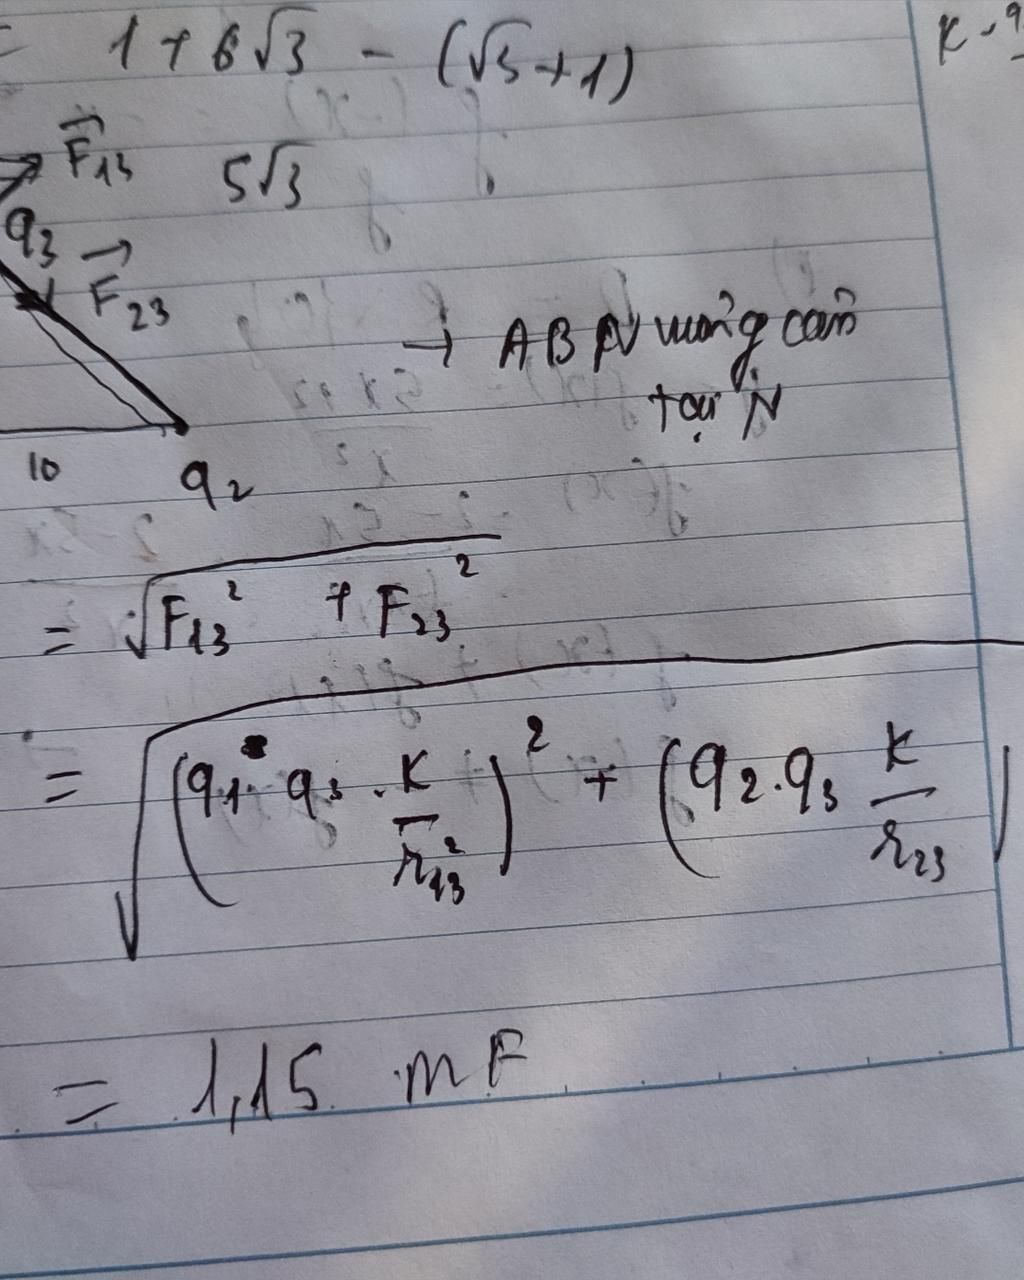 = 1 + 6√3 - (√3 + 1)
K . q
F₁₃
5√3
q₃
F₂₃
→ ABN vuông cân
tại N
10
q₂
= √F₁₃² + F₂₃²
= √(q₁. q₃ . K/r₁₃²)² + (q₂.q₃ K/r₂₃)
= 1,15 mF